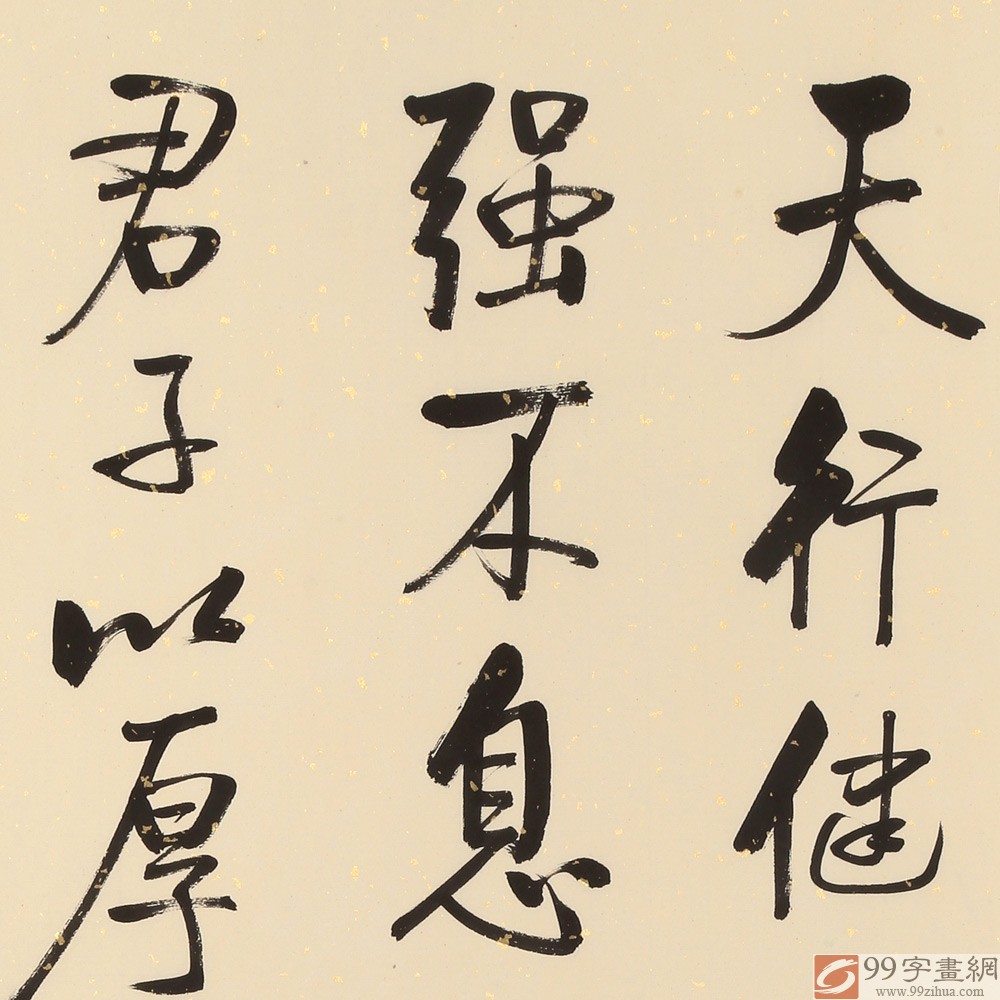 天行健
强不息
君子以厚
99字畫網
www.99zihua.com